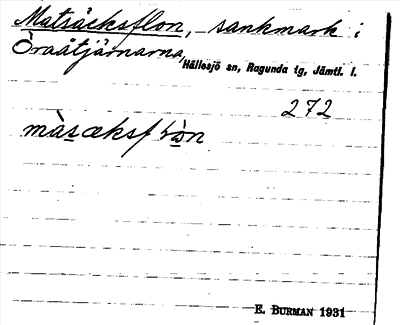 Matsäcksflon, sankmark i
Öraåtjärnarna,
Hällesjö sn, Ragunda tg, Jämtl. l.
272
E. BURMAN 1931